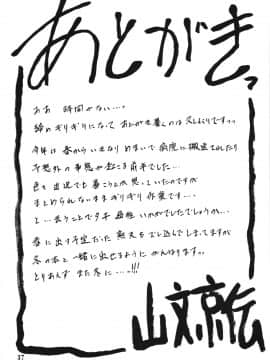 あとがきっ
ああ 時間がない…。
締めぎりぎりになって あとがき書くのは久しぶりですっ
今年は 春から いきなり めまいで 病院に 搬送されたり
予想外の事態が起こる前半でした…
色々 出迷でも 書こうとか思っていたのですが
まとめられないまま ぎりぎり 作業です…
と…言うことで夕子 最悪 いかがでしたでしょうか…
春に出す予定だった 無天を ずれ込んでしまってますが
冬の本と一緒に出せるように がんばりますっ。
とりあえず また冬に…っ!!!
山文京伝
37